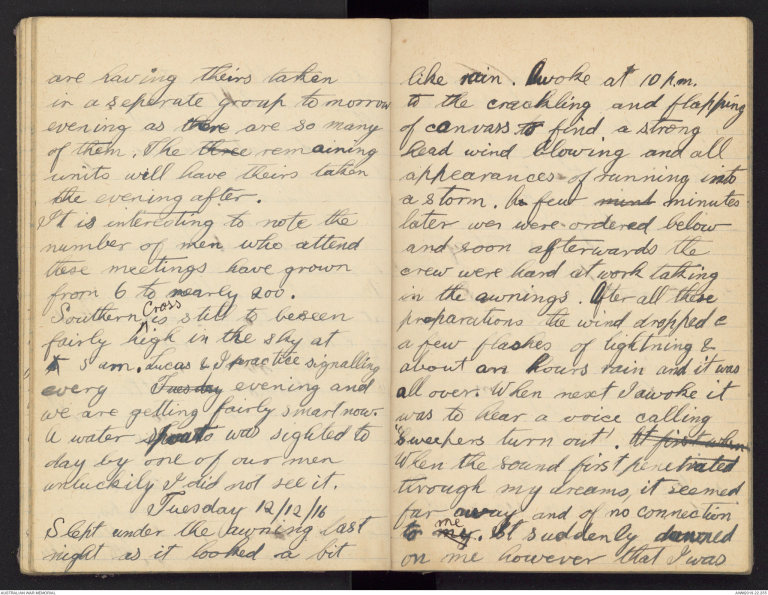 are having theirs taken
in a seperate group to morrow
evening as there are so many
of them. The three remaining
units will have theirs taken
the evening after.
It is interesting to note the
number of men who attend
these meetings have grown
from 6 to nearly 200.
Southern Cross is still to be seen
fairly high in the sky at
5 am. Lucas & I practice signalling
every Tuesday evening and
we are getting fairly smart now.
A water spout was sighted to
day by one of our men
unluckily I did not see it.
Tuesday 12/12/16
Slept under the awning last
night as it looked a bit
like rain. Awoke at 10 p.m.
to the crackling and flapping
of canvass to find a strong
head wind blowing and all
appearances of running into
a storm. A few minut minutes
later wer were ordered below
and soon afterwards the
crew were hard at work taking
in the awnings. After all these
preparations the wind dropped &
a few flashes of lightning &
about an hours rain and it was
all over. When next I awoke it
was to hear a voice calling
"Sweepers turn out'. At first when
When the sound first penetrated
through my dreams, it seemed
far away and of no connection
to my me. It suddenly dawned
on me however that I was
AUSTRALIAN WAR MEMORIAL